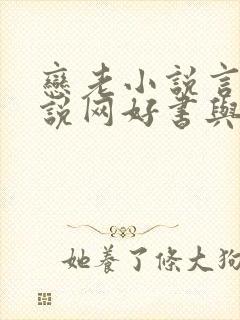 戀老小說言
說网好書與
她養了條大狗